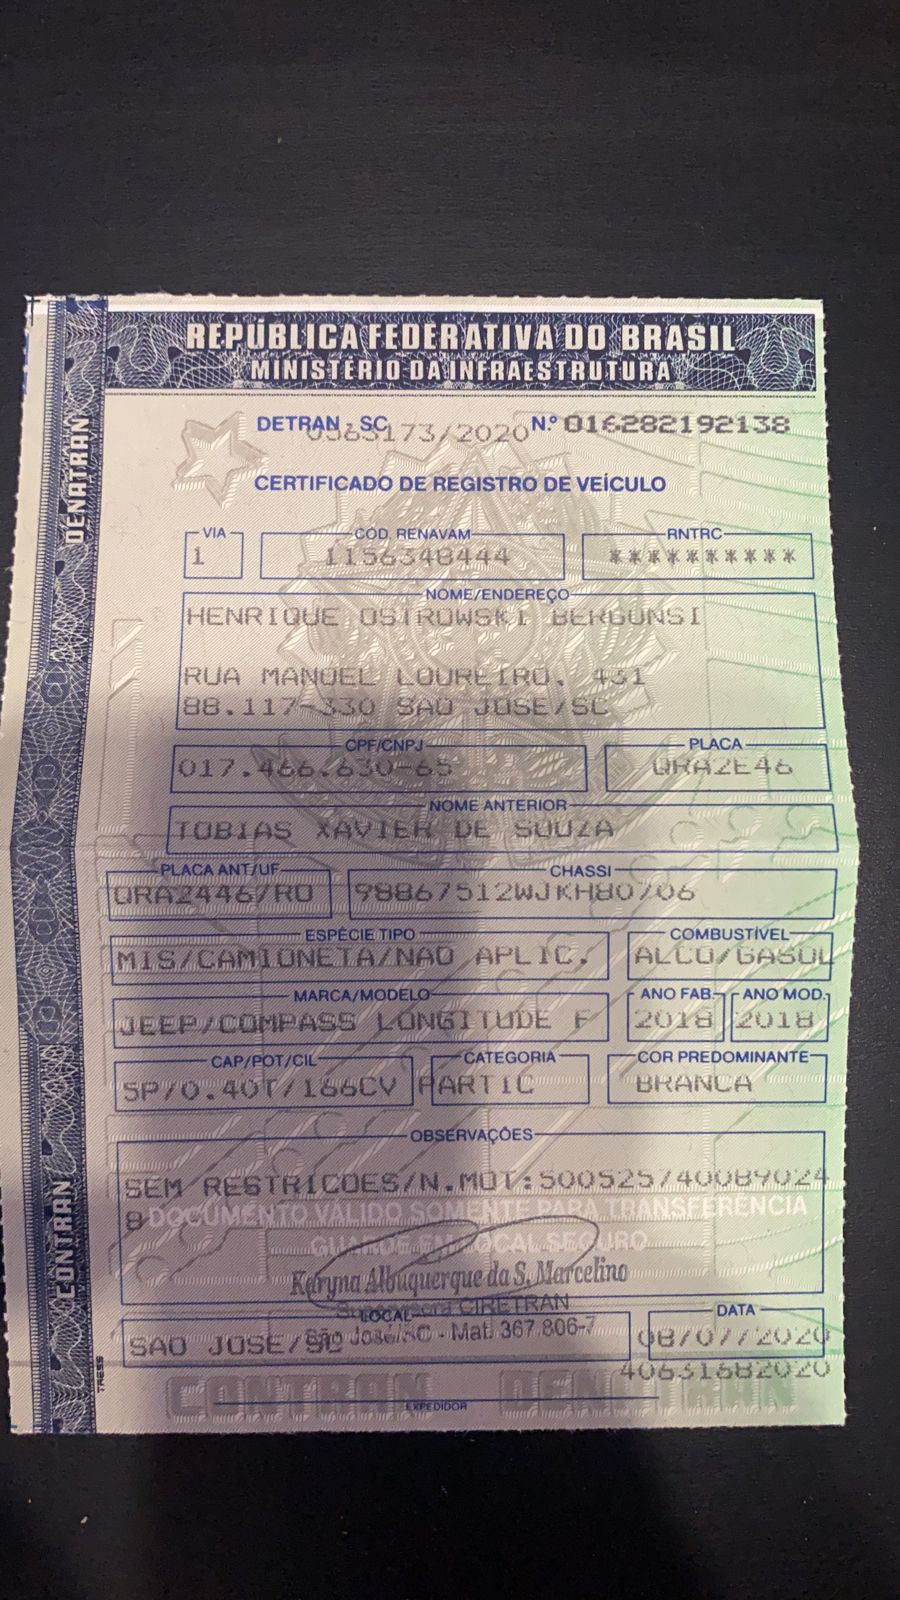 REPÚBLICA FEDERATIVA DO BRASIL
MINISTÉRIO DA INFRAESTRUTURA
DENATRAN
DETRAN - SC
0563173/2020
N.º 016282192138
CERTIFICADO DE REGISTRO DE VEÍCULO
VIA
1
CÓD. RENAVAM
1156348444
RNTRC
**********
NOME/ENDEREÇO
HENRIQUE OSTROWSKI BERGONSI
RUA MANOEL LOUREIRO, 431
88.117-330 SAO JOSE/SC
CPF/CNPJ
017.466.630-65
PLACA
QRA2E46
NOME ANTERIOR
TOBIAS XAVIER DE SOUZA
PLACA ANT/UF
QRA2446/RO
CHASSI
98867512WJKH80706
ESPÉCIE TIPO
MIS/CAMIONETA/NAO APLIC.
COMBUSTÍVEL
ALCO/GASOL
MARCA/MODELO
JEEP/COMPASS LONGITUDE F
ANO FAB.
2018
ANO MOD.
2018
CAP/POT/CIL
5P/0.40T/166CV
CATEGORIA
PARTIC
COR PREDOMINANTE
BRANCA
OBSERVAÇÕES
SEM RESTRICOES/N.MOT:500525740089024
8
DOCUMENTO VÁLIDO SOMENTE PARA TRANSFERÊNCIA
GUARDE EM LOCAL SEGURO
Karyna Albuquerque da S. Marcelino
CIRETRAN
São José/SC - Mat. 367.806-7
LOCAL
SAO JOSE/SC
DATA
08/07/2020
40631682020
CONTRAN DENATRAN
EXPEDIDOR
CONTRAN